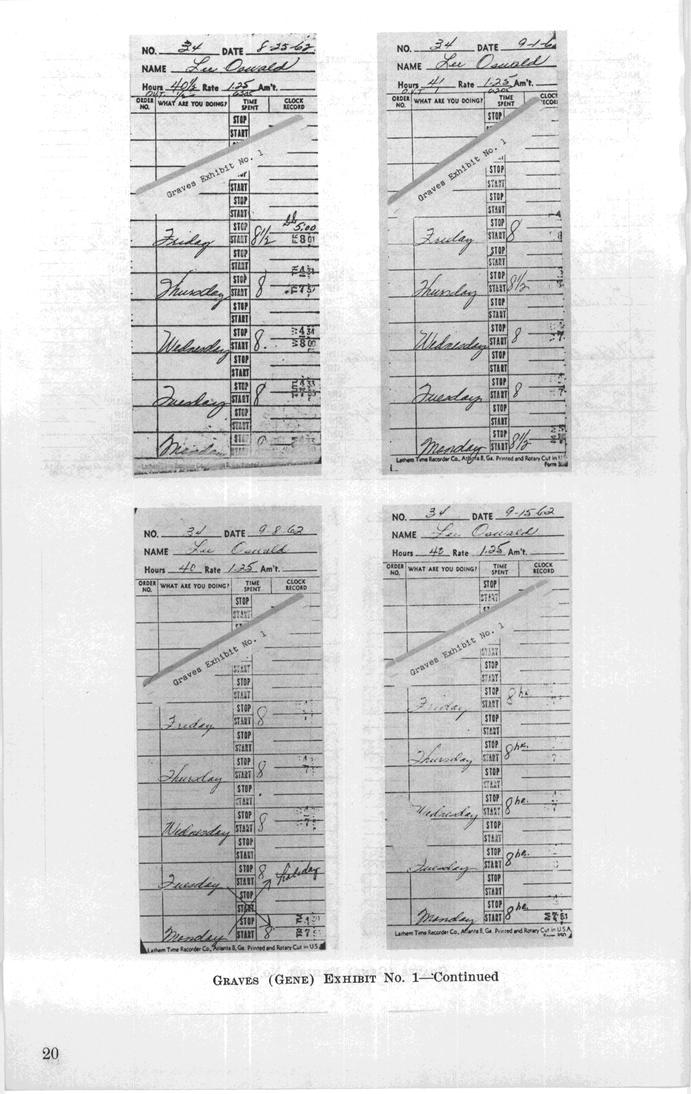 NO. 34 DATE 8-25-62
NAME Lee Oswald
Hours 40½ Rate 1.25 Am't.
O.V.T. ½
ORDER NO. WHAT ARE YOU DOING? TIME SPENT CLOCK RECORD
STOP
START
Graves Exhibit No. 1
START
STOP
START
Friday STOP 8½ 5:00
START
STOP
START
Thursday STOP 8
START
STOP
START
Wednesday STOP 8
START
STOP
START
Tuesday STOP 8
START
STOP
START
STOP
START
NO. 34 DATE 9-1-6
NAME Lee Oswald
Hours 41 Rate 1.25 Am't.
O.V.T 1
ORDER NO. WHAT ARE YOU DOING? TIME SPENT
STOP
START
Graves Exhibit No. 1
STOP
START
STOP
START
Friday STOP 8
START
STOP
START
Thursday STOP 8½
START
STOP
START
Wednesday STOP 8
START
STOP
START
Tuesday STOP 8
START
STOP
START
Monday STOP 8½
START
Lathem Time Recorder Co., Atlanta 8, Ga. Printed and Rotary Cut in U.
NO. 34 DATE 9-8-62
NAME Lee Oswald
Hours 40 Rate 1.25 Am't.
ORDER NO. WHAT ARE YOU DOING? TIME SPENT CLOCK RECORD
STOP
START
Graves Exhibit No. 1
START
STOP
START
Friday STOP 8
START
STOP
START
Thursday STOP 8
START
STOP
START
Wednesday STOP 8
START
STOP
START
Tuesday STOP 8 holiday
START
STOP
START
Monday STOP
START 8
Lathem Time Recorder Co., Atlanta 8, Ga. Printed and Rotary Cut in U.S.A.
NO. 34 DATE 9-15-62
NAME Lee Oswald
Hours 40 Rate 1.25 Am't.
ORDER NO. WHAT ARE YOU DOING? TIME SPENT CLOCK RECORD
STOP
START
Graves Exhibit No. 1
START
STOP
START
Friday STOP 8 hr.
START
STOP
START
Thursday STOP 8 hr.
START
STOP
START
Wednesday STOP 8 hr.
START
STOP
START
Tuesday STOP 8 hr.
START
STOP
START
Monday STOP 8 hr.
START
Lathem Time Recorder Co., Atlanta 8, Ga. Printed and Rotary Cut in U.S.A.
GRAVES (GENE) EXHIBIT No. 1—Continued
20